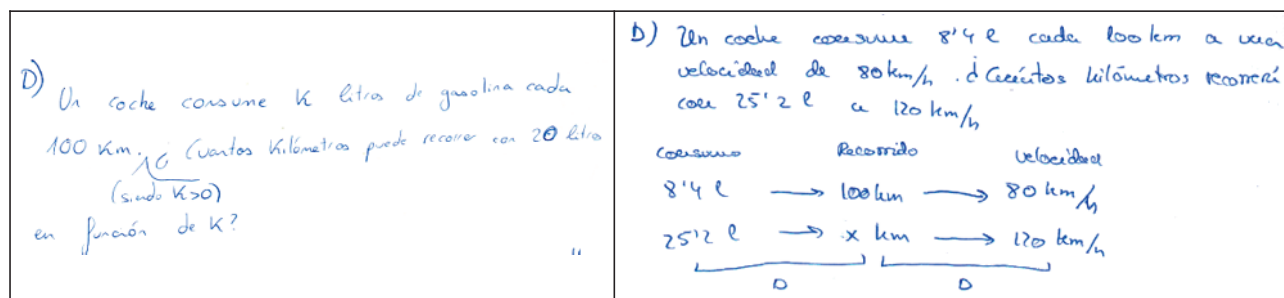 D)
Un coche consume K litros de gasolina cada
100 Km. ¿Cuantos Kilómetros puede recorrer con 20 litros
(siendo K>0)
en función de K?
D) Un coche consume 8'4 l cada 100 km a una
velocidad de 80 km/h. ¿Cuántos kilómetros recorrerá
con 25'2 l a 120 km/h
Consumo Recorrido velocidad
8'4 l → 100 km → 80 km/h
25'2 l → x km → 120 km/h
D D